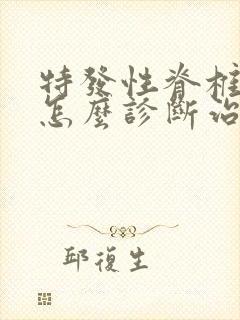 特發性脊柱
怎麼診斷治
邱復生